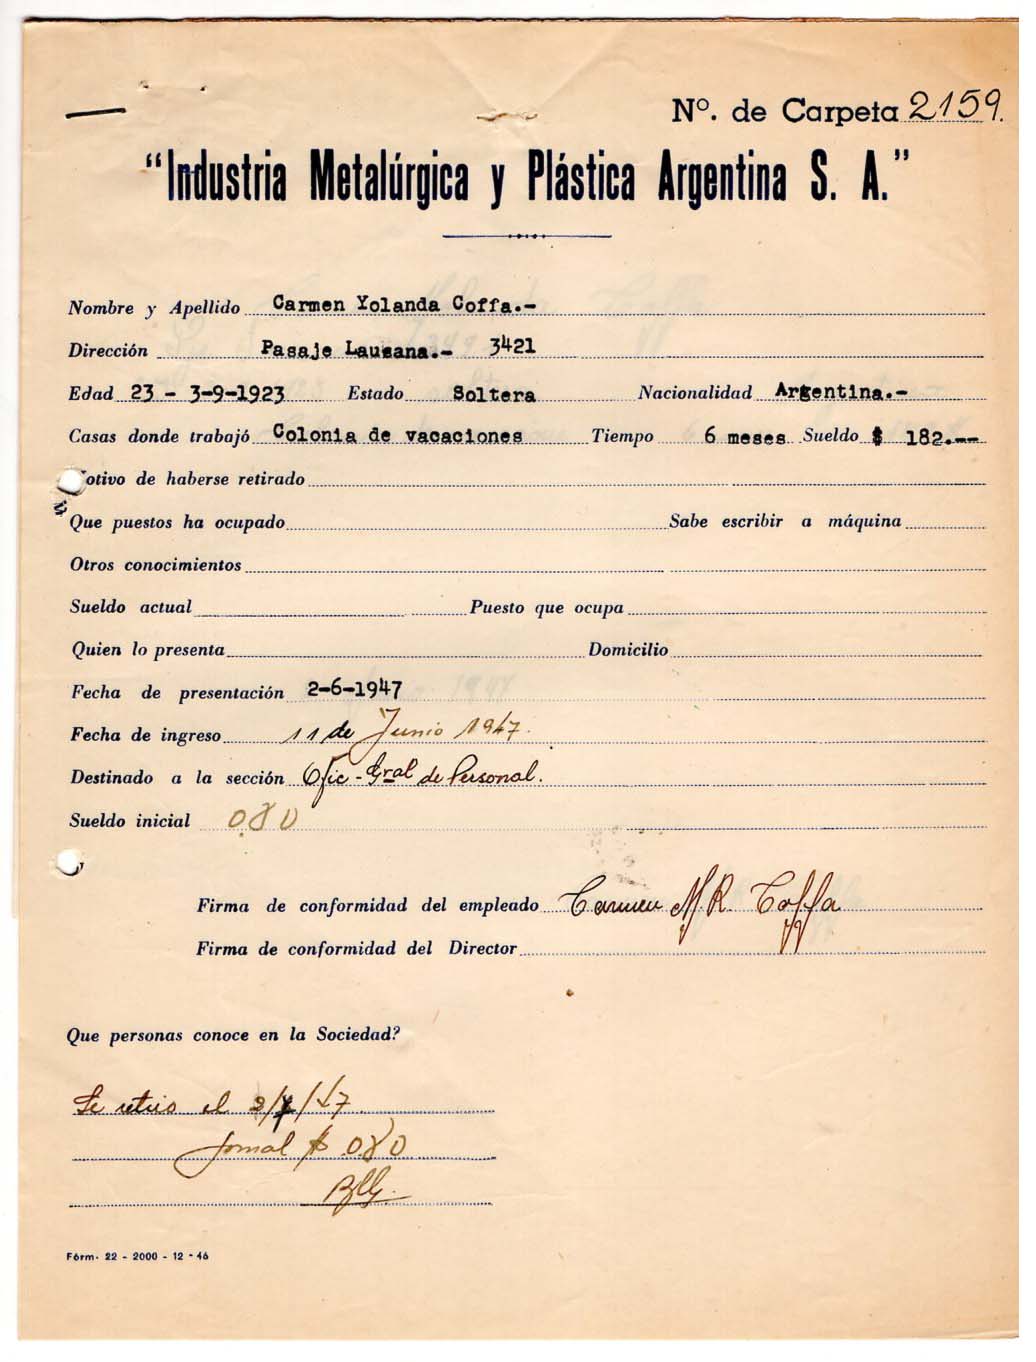 Nº. de Carpeta 2159.
"Industria Metalúrgica y Plástica Argentina S. A."
Nombre y Apellido Carmen Yolanda Coffa.-
Dirección Pasaje Lausana.- 3421
Edad 23 - 3-9-1923 Estado Soltera Nacionalidad Argentina.-
Casas donde trabajó Colonia de vacaciones Tiempo 6 meses Sueldo $ 182.--
otivo de haberse retirado
Que puestos ha ocupado Sabe escribir a máquina
Otros conocimientos
Sueldo actual Puesto que ocupa
Quien lo presenta Domicilio
Fecha de presentación 2-6-1947
Fecha de ingreso 11 de Junio 1947.
Destinado a la sección Ofic - Gral de Personal.
Sueldo inicial 0.80
Firma de conformidad del empleado Carmen M R. Coffa
Firma de conformidad del Director
Que personas conoce en la Sociedad?
Se retiro el
Jornal $ 0.80
Fórm. 22 - 2000 - 12 - 46